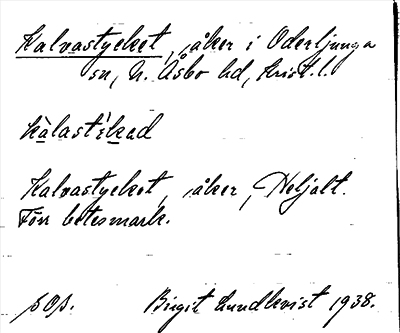 Kalvastycket, åker i Oderljunga
sn, N. Åsbo hd, Krist. l.
Kalvastycket, åker, Heljalt.
Förr betesmark.
Birgit Lundkvist 1938.